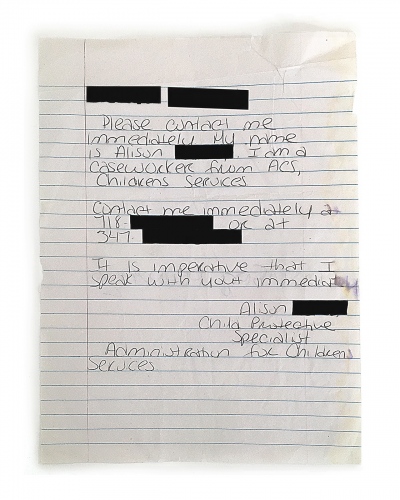 Please contact me
immediately My name
is Alison . I am a
caseworker from ACS,
Childrens Services
Contact me immediately at
718- or at
347-
It is imperative that I
speak with yout immediatly
Alison
Child Protective
Specialist
Administration for Childrens
Services